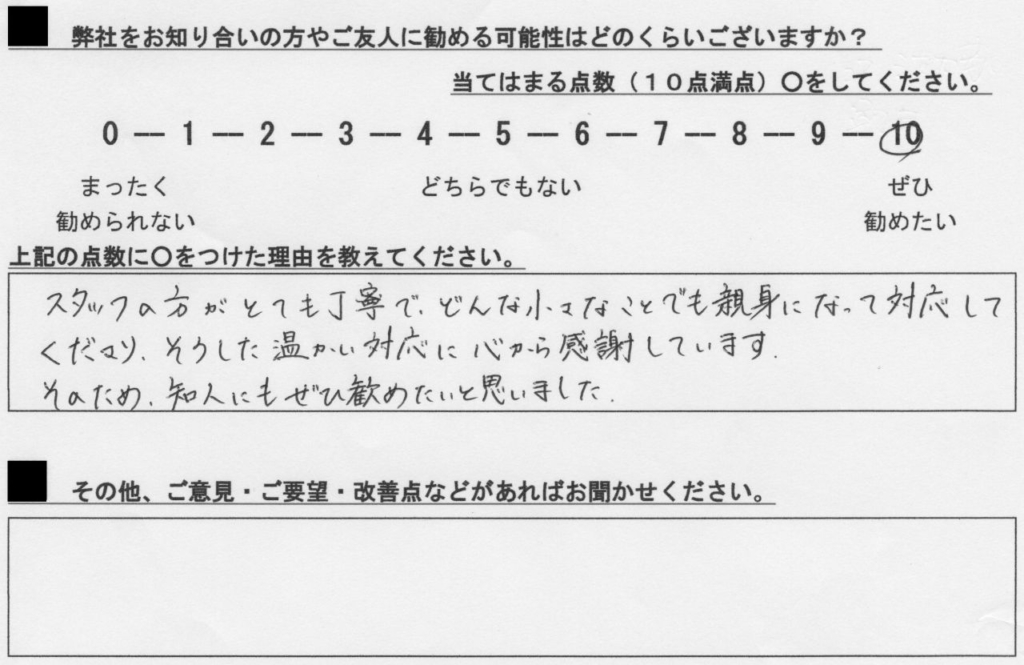 弊社をお知り合いの方やご友人に勧める可能性はどのくらいございますか？
当てはまる点数（１０点満点）〇をしてください。
0 ― 1 ― 2 ― 3 ― 4 ― 5 ― 6 ― 7 ― 8 ― 9 ― 10
まったく どちらでもない ぜひ
勧められない 勧めたい
上記の点数に〇をつけた理由を教えてください。
スタッフの方がとても丁寧で、どんな小々なことでも親身になって対応して
くださり、そうした温かい対応に心から感謝しています.
そのため、知人にもぜひ歓めたいと思いました.
その他、ご意見・ご要望・改善点などがあればお聞かせください。